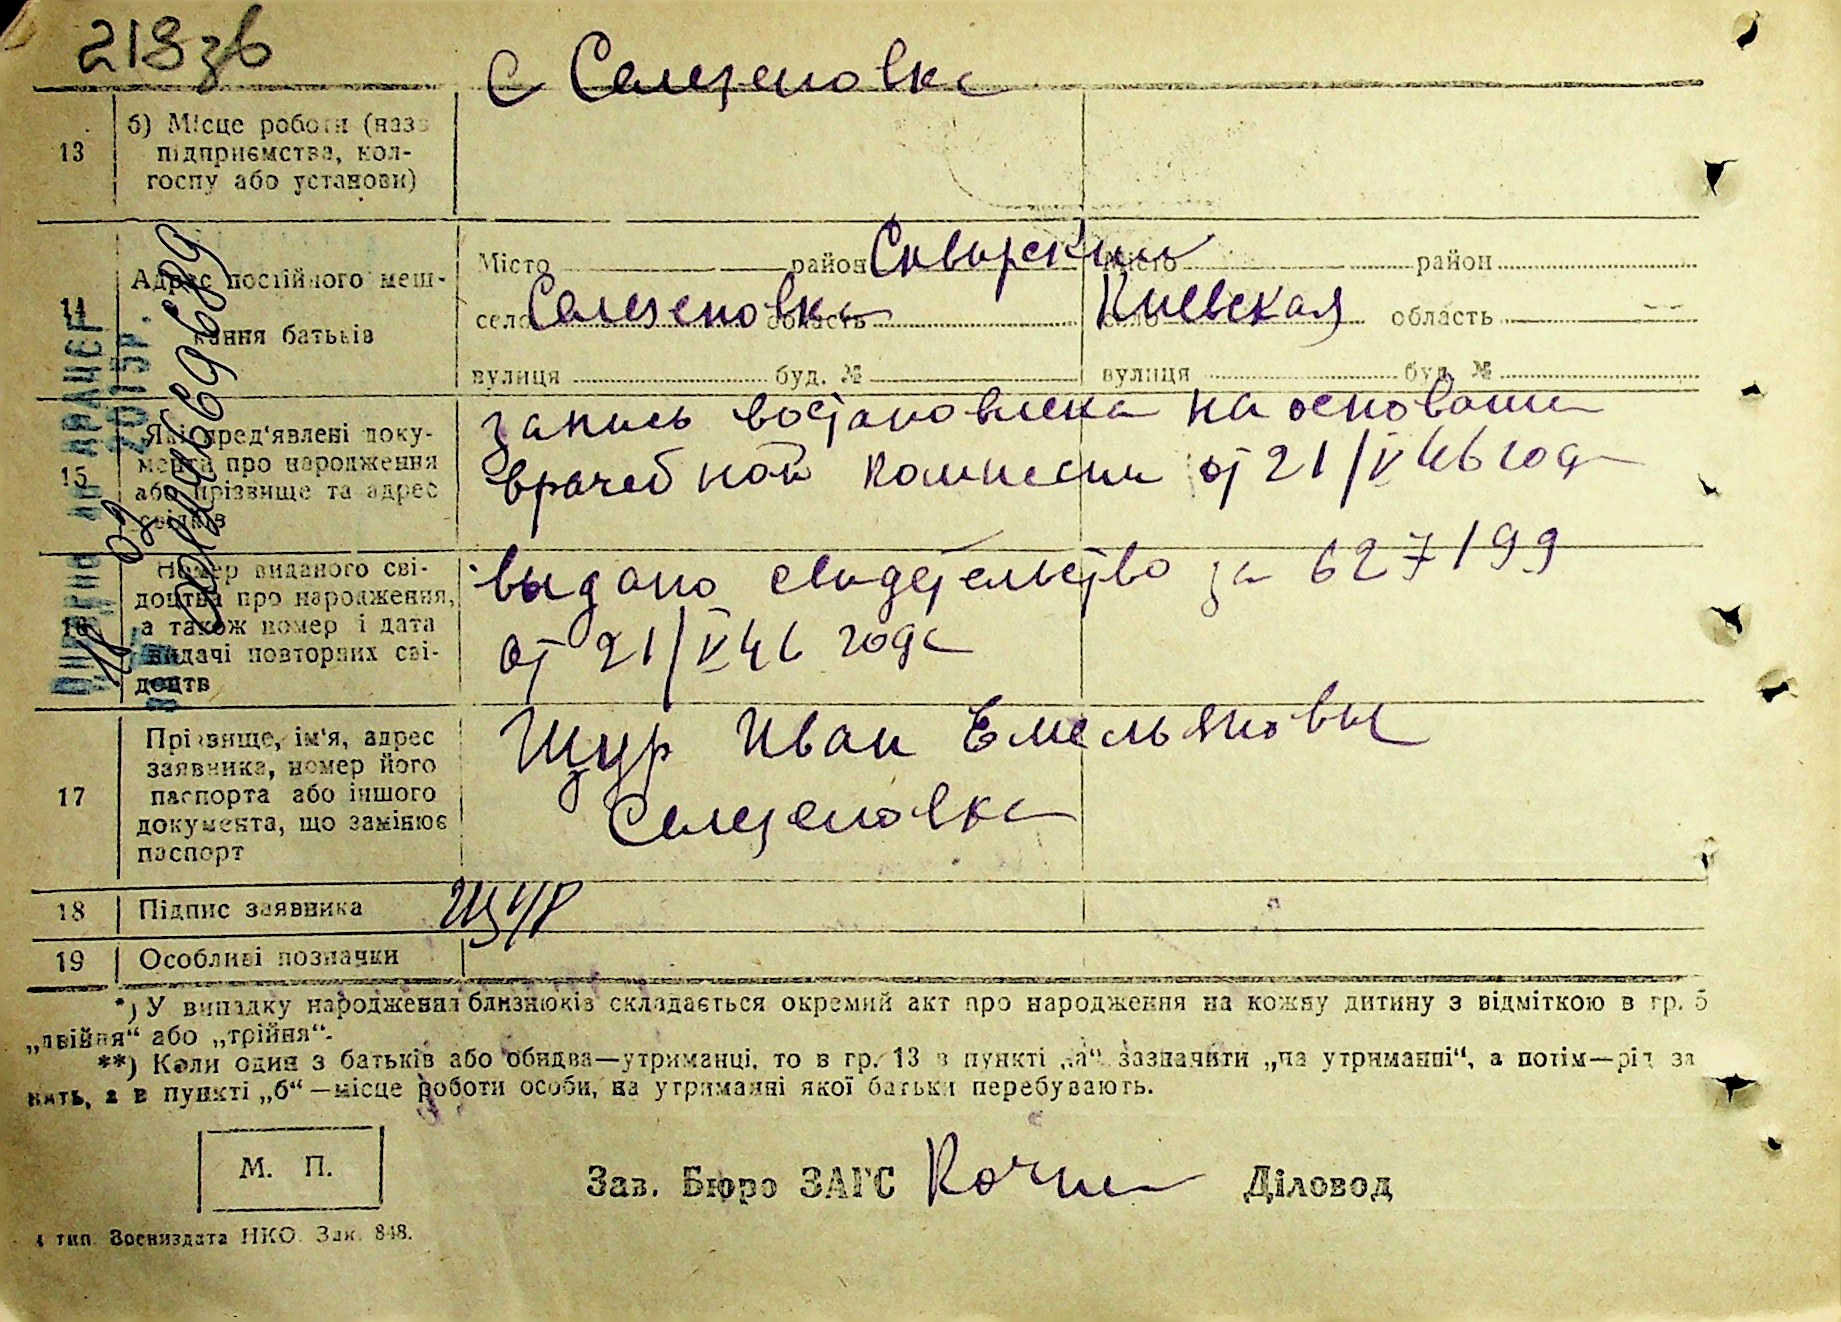 218зв
с Селезеновка
13
б) Місце роботи (назв
підприємства, кол-
госпу або установи)
14
Адрес постійного меш-
кання батьків
Місто район Сквирский Місто район
село Селезеновка область село Киевская область
вулиця буд. № вулиця буд. №
15
Які пред'явлені доку-
менти про народження
або прізвище та адрес
свідків
запись востановлена на основании
врачебной комиссии от 21/V 46 года
16
Номер виданого сві-
доцтва про народження,
а також номер і дата
видачі повторних сві-
доцтв
выдано свидетельство за 627199
от 21/V 46 года
17
Прізвище, ім'я, адрес
заявника, номер його
паспорта або іншого
документа, що замінює
паспорт
Щур Иван Емельянович
Селезеновка
18 Підпис заявника Щур
19 Особливі позначки
*) У випадку народження близнюків складається окремий акт про народження на кожну дитину з відміткою в гр. 5
„двійня“ або „трійня“.
**) Коли один з батьків або обидва—утриманці, то в гр. 13 в пункті „а“ зазначити „на утриманні“, а потім—рід за
нять, а в пункті „б“—місце роботи особи, на утриманні якої батьки перебувають.
М. П.
Зав. Бюро ЗАГС Діловод
4 тип. Воениздата НКО. Зак. 848.